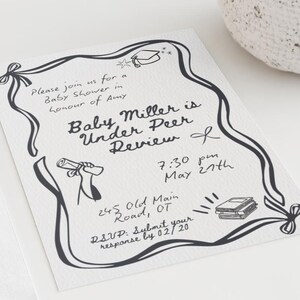 Please join us for a
Baby Shower in
honour of Amy
Baby Miller is
Under Peer
Review
7:30 pm
May 27th
245 Old Main
Road, OT
RSVP: Submit your
response by 02/20